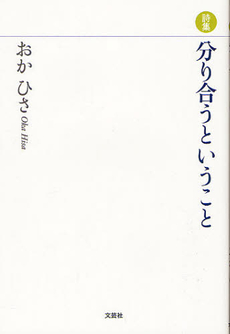 詩集
分り合うということ
おか ひさ
Oka Hisa
文芸社